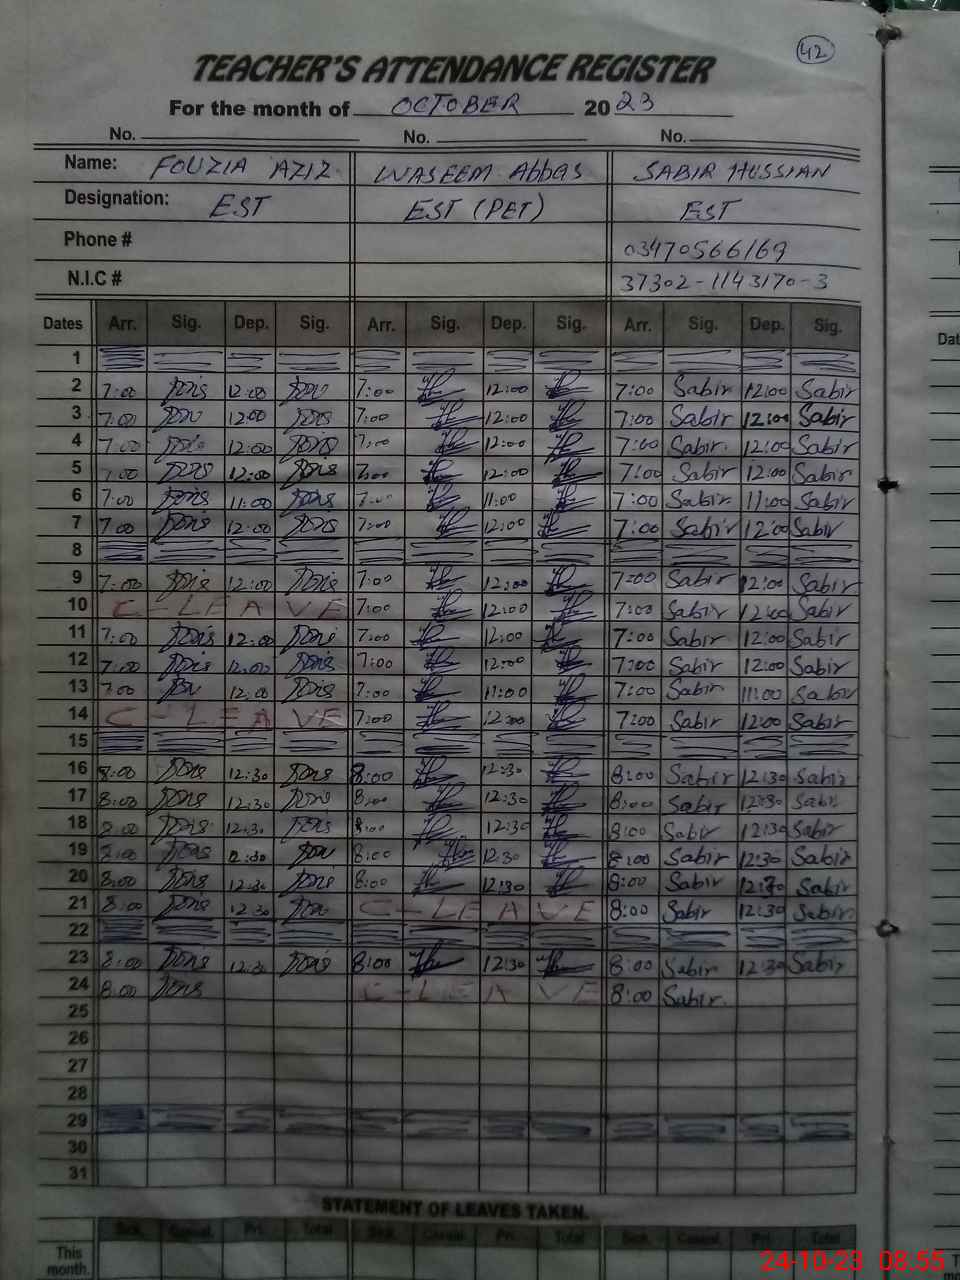 42
TEACHER'S ATTENDANCE REGISTER
For the month of OCTOBER 2023
No. No. No.
Name: FOUZIA AZIZ WASEEM Abbas SABIR HUSSIAN
Designation: EST EST (PET) EST
Phone # 03470566169
N.I.C # 37302-1143170-3
Dates Arr. Sig. Dep. Sig. Arr. Sig. Dep. Sig. Arr. Sig. Dep. Sig.
1
2 7:00 12:00 7:00 12:00 7:00 Sabir 12:00 Sabir
3 7:00 12:00 7:00 12:00 7:00 Sabir 12:00 Sabir
4 7:00 12:00 7:00 12:00 7:00 Sabir 12:00 Sabir
5 7:00 12:00 7:00 12:00 7:00 Sabir 12:00 Sabir
6 7:00 11:00 7:00 11:00 7:00 Sabir 11:00 Sabir
7 7:00 12:00 7:00 12:00 7:00 Sabir 12:00 Sabir
8
9 7:00 12:00 7:00 12:00 7:00 Sabir 12:00 Sabir
10 C-LEAVE 7:00 12:00 7:00 Sabir 12:00 Sabir
11 7:00 12:00 7:00 12:00 7:00 Sabir 12:00 Sabir
12 7:00 12:00 7:00 12:00 7:00 Sabir 12:00 Sabir
13 7:00 12:00 7:00 11:00 7:00 Sabir 11:00 Sabir
14 C-LEAVE 7:00 12:00 7:00 Sabir 12:00 Sabir
15
16 8:00 12:30 8:00 12:30 8:00 Sabir 12:30 Sabir
17 8:00 12:30 8:00 12:30 8:00 Sabir 12:30 Sabir
18 8:00 12:30 8:00 12:30 8:00 Sabir 12:30 Sabir
19 8:00 12:30 8:00 12:30 8:00 Sabir 12:30 Sabir
20 8:00 12:30 8:00 12:30 8:00 Sabir 12:30 Sabir
21 8:00 12:30 C-LEAVE 8:00 Sabir 12:30 Sabir
22
23 8:00 12:30 8:00 12:30 8:00 Sabir 12:30 Sabir
24 8:00 C-LEAVE 8:00 Sabir
25
26
27
28
29
30
31
STATEMENT OF LEAVES TAKEN.
Sick. Casual. Pri. Total Sick. Casual. Pri. Total Sick. Casual. Pri. Total
This month.
24-10-23 08:55
Dat